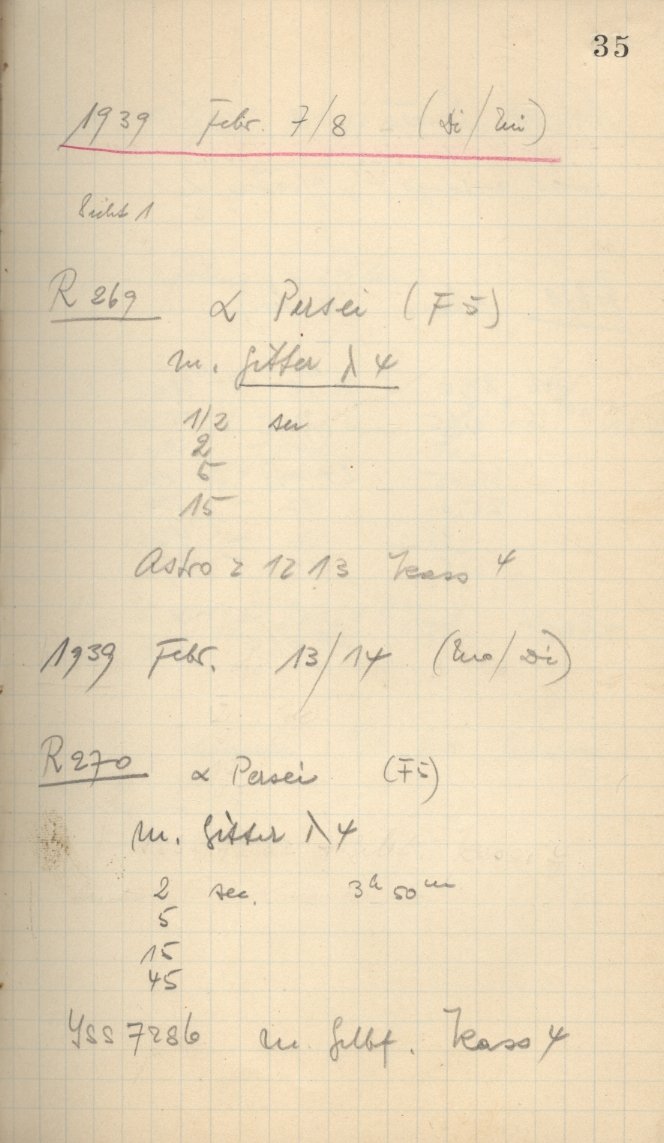 35
1939 Febr. 7/8 (Di/Mi)
Sicht 1
R 269 α Persei (F5)
m. Gitter λ 4
1/2 sec
2
5
15
Astro Z 1213 Kass 4
1939 Febr. 13/14 (Mo/Di)
R 270 α Persei (F5)
m. Gitter λ 4
2 sec. 3h 50m
5
15
45
Iss 7286 m. Gelbf. Kass 4